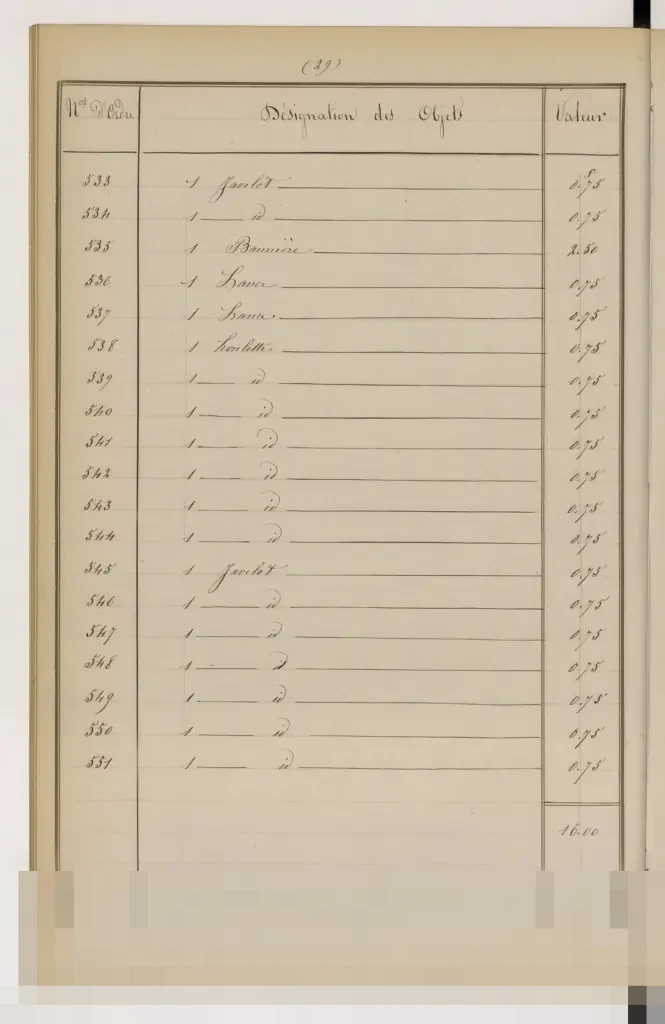 (29)
Nos D'Ordre Désignation des Objets Valeur
533 1 Javelot 0.75
534 1 id 0.75
535 1 Bannière 2.50
536 1 Lance 0.75
537 1 Lance 0.75
538 1 houlette 0.75
539 1 id 0.75
540 1 id 0.75
541 1 id 0.75
542 1 id 0.75
543 1 id 0.75
544 1 id 0.75
545 1 Javelot 0.75
546 1 id 0.75
547 1 id 0.75
548 1 id 0.75
549 1 id 0.75
550 1 id 0.75
551 1 id 0.75
16.00